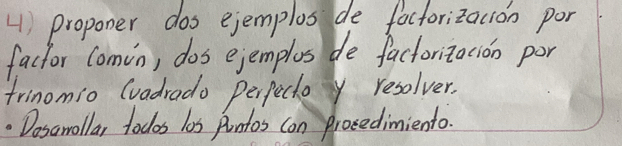 4) proponer dos ejemplos de factorización por
factor común, dos ejemplos de factorización por
trinomio Cuadrado perfecto y resolver.
• Desarrollar todos los puntos con procedimiento.